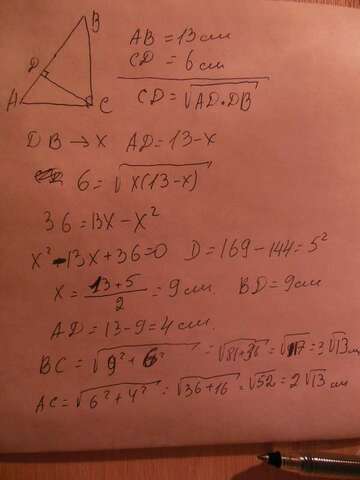 B
D
A
C
AB = 13 см
CD = 6 см
CD = √AD·DB
DB → x AD = 13-x
6 = √x(13-x)
36 = 13x - x²
x² - 13x + 36 = 0 D = 169 - 144 = 5²
x = (13+5)/2 = 9 см. BD = 9 см
AD = 13 - 9 = 4 см.
BC = √9² + 6² = √81+36 = √117 = 3√13 см
AC = √6² + 4² = √36+16 = √52 = 2√13 см